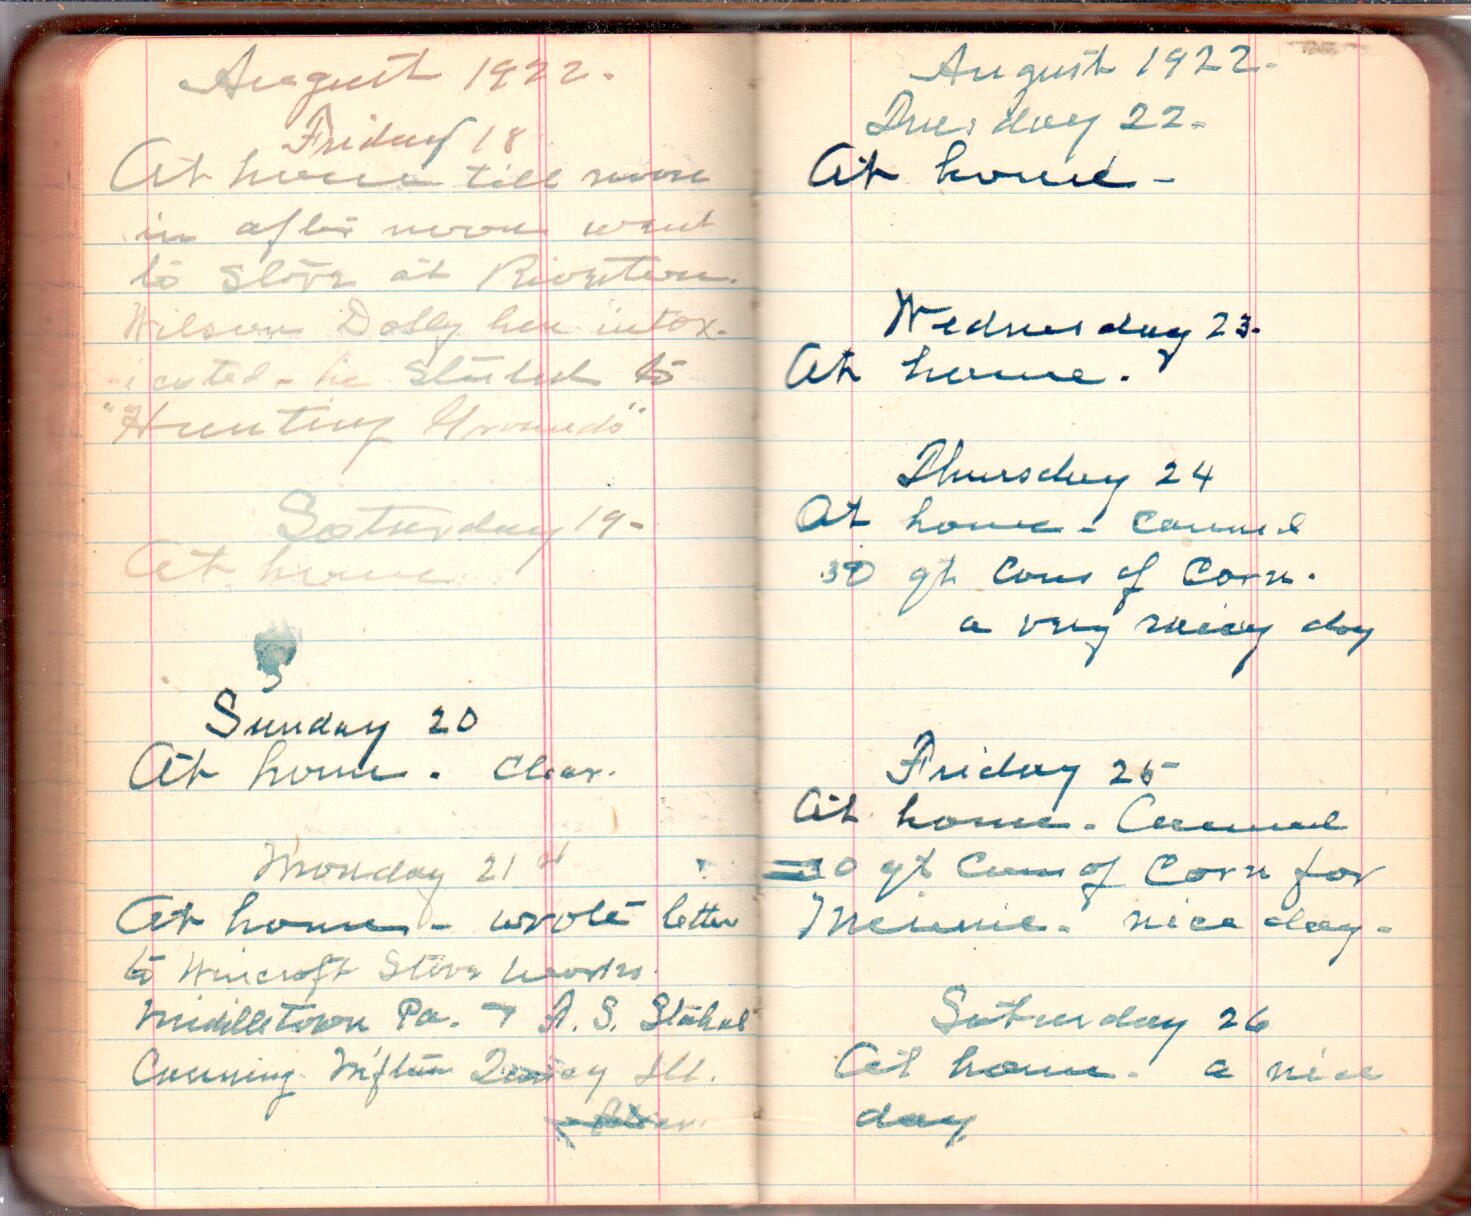 August 1922.
Friday 18
At home till noon
in after noon went
to Store at Riverton.
Wilson Dolly here intox-
icated - he started to
"Hunting Grounds"
Saturday 19-
At home
Sunday 20
At home. Clear.
Monday 21st
At home - wrote letter
to Wincroft Stove Works
Middletown Pa. & A. S. Stahl
Canning Quincy Ill.
August 1922-
Tuesday 22-
At home -
Wednesday 23-
At home.
Thursday 24
At home - Canned
30 qt Cans of Corn.
a very rainy day
Friday 25
At home - Canned
30 qt Cans of Corn for
Minnie. nice day-
Saturday 26
At home. a nice
day